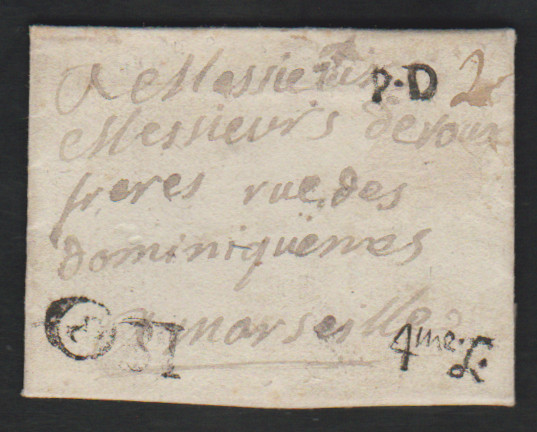 A Messieurs P.D 2
Messieurs deroux
freres rue des
dominiquennes
A marseille
4me. L.